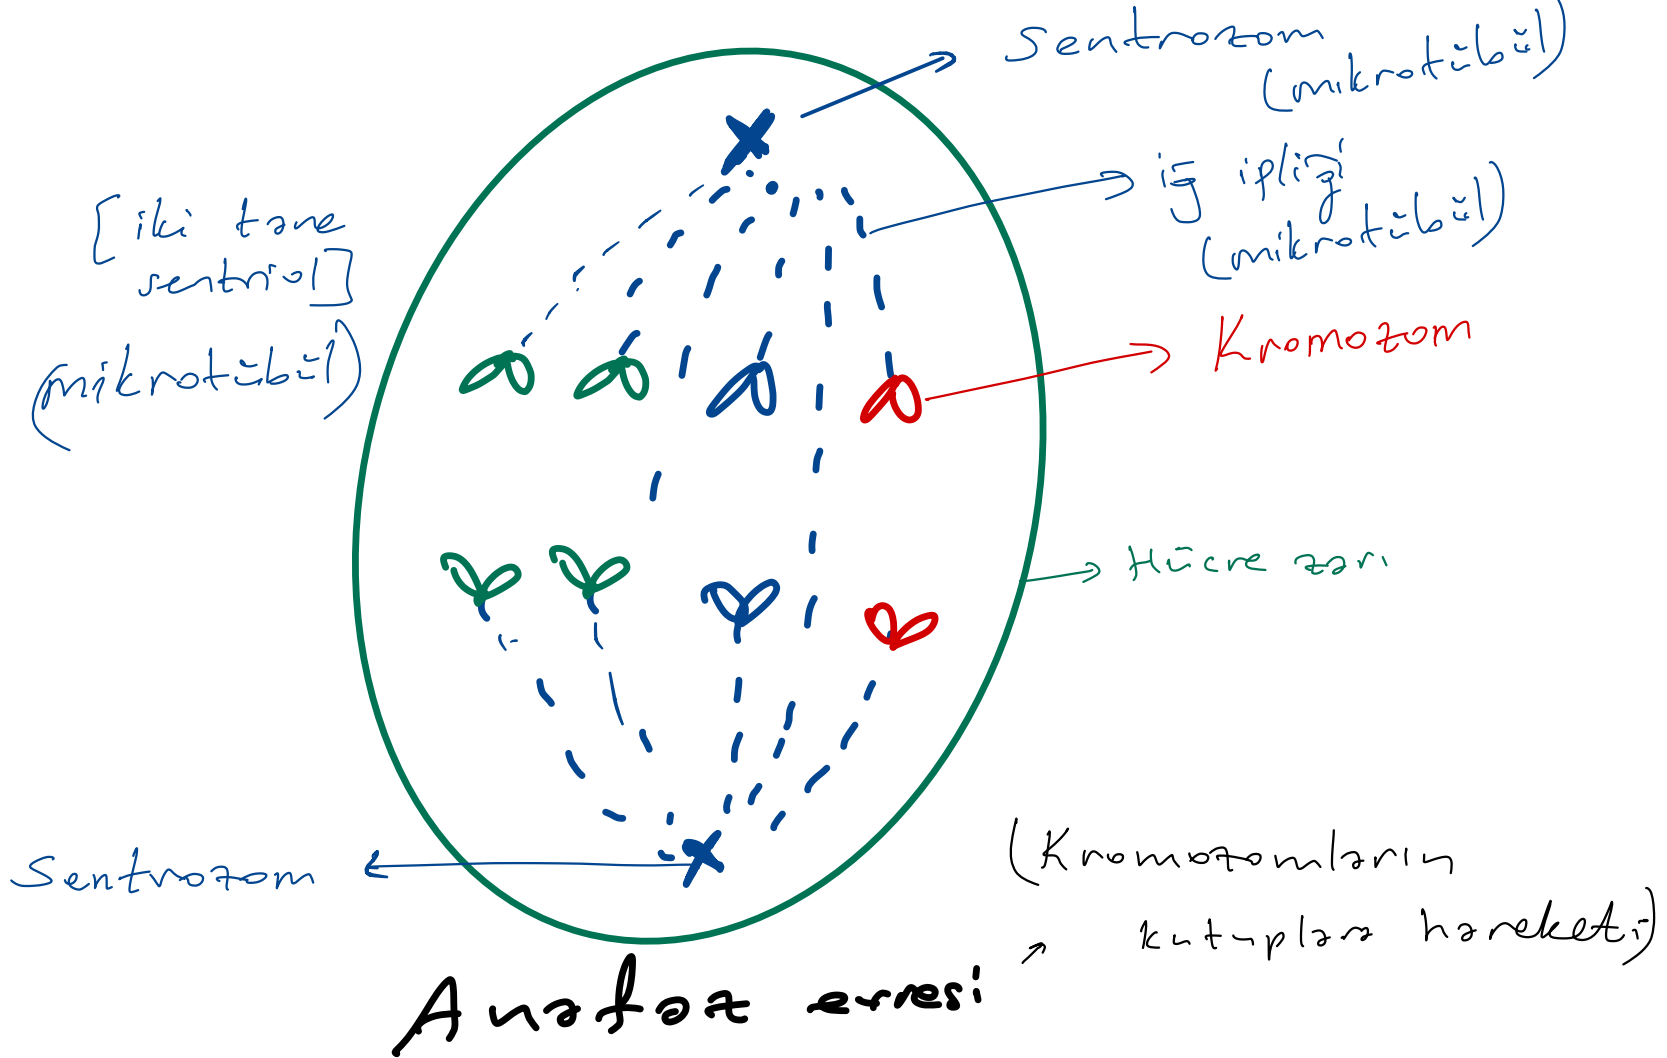 Sentrozom
(mikrotübül)
iğ ipliği
(mikrotübül)
[iki tane
sentriol]
(mikrotübül)
Kromozom
Hücre zarı
Sentrozom
(Kromozomların
kutuplara hareketi)
Anafaz evresi